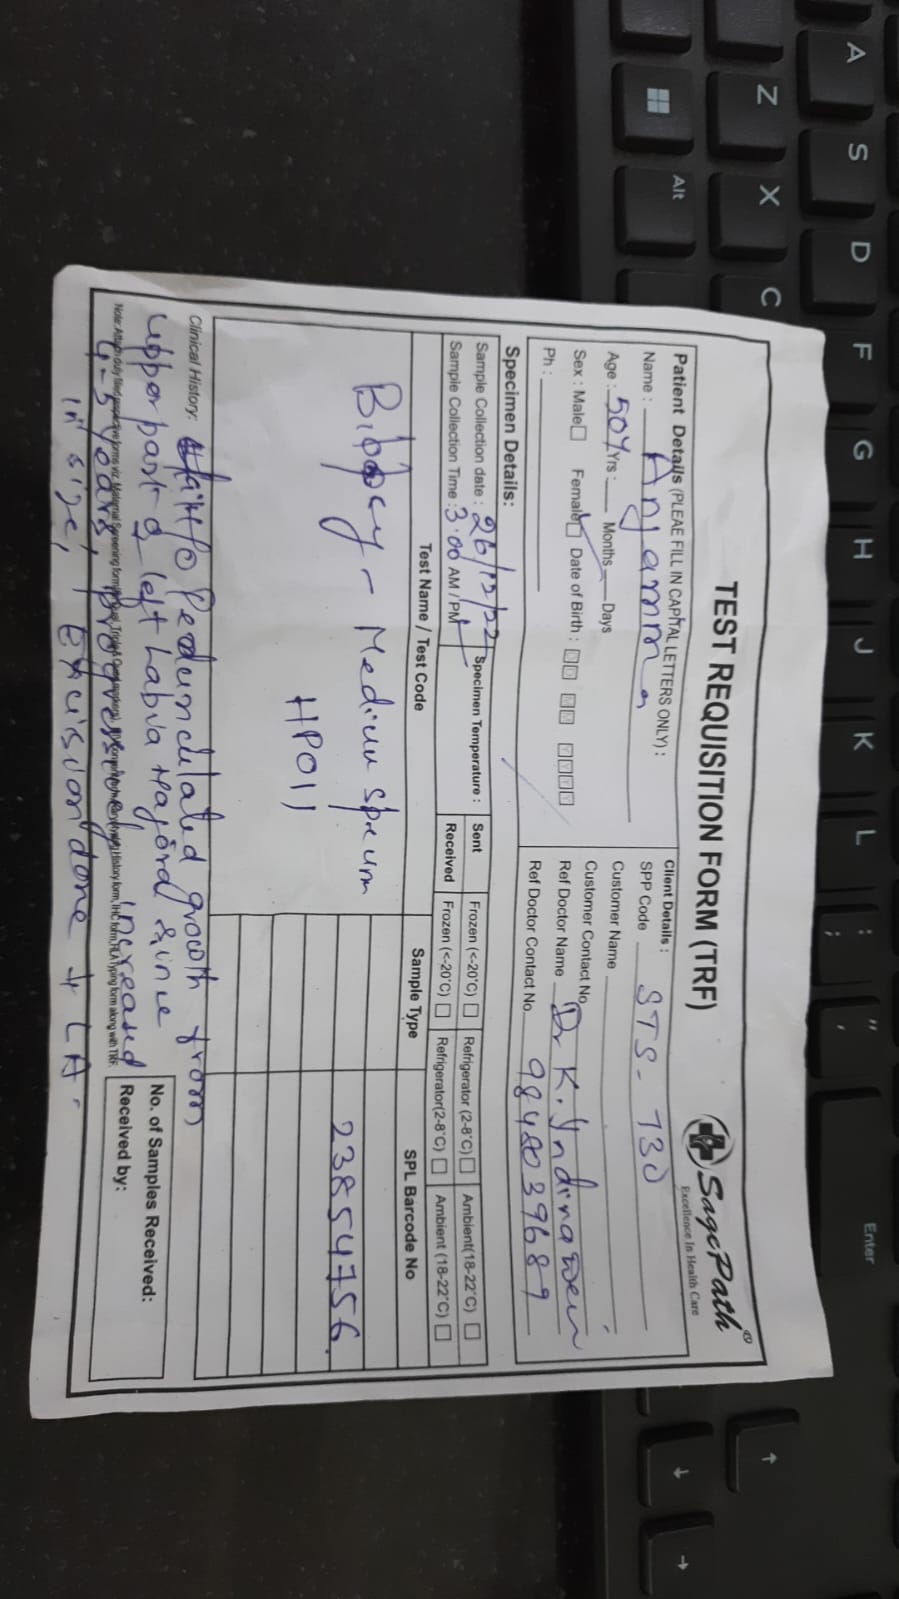 TEST REQUISITION FORM (TRF)
SagePath®
Excellence In Health Care
Patient Details (PLEAE FILL IN CAPITAL LETTERS ONLY) :
Name : Anjamma
Age : 50Y Yrs : Months Days
Sex : Male Female Date of Birth : D D M M Y Y Y Y
Ph :
Client Details :
SPP Code STS-730
Customer Name
Customer Contact No
Ref Doctor Name Dr K.
Ref Doctor Contact No
Specimen Details:
Sample Collection date : 26/12/22
Sample Collection Time : 3.00 AM / PM
Specimen Temperature :
Sent Frozen (<-20°C) Refrigerator (2-8°C) Ambient(18-22°C)
Received Frozen (<-20°C) Refrigerator(2-8°C) Ambient (18-22°C)
Test Name / Test Code Sample Type SPL Barcode No
Biopsy - Medium 23854756
HP011
Clinical History: H/O Pedunculated growth from
upper part of left Labia Majora since
4-5 years, progressively increased
in size, Excision done LA.
Note: Attach duly filled
No. of Samples Received:
Received by:
A S D F G H J K L : ; " '
Z X C
Alt
Enter